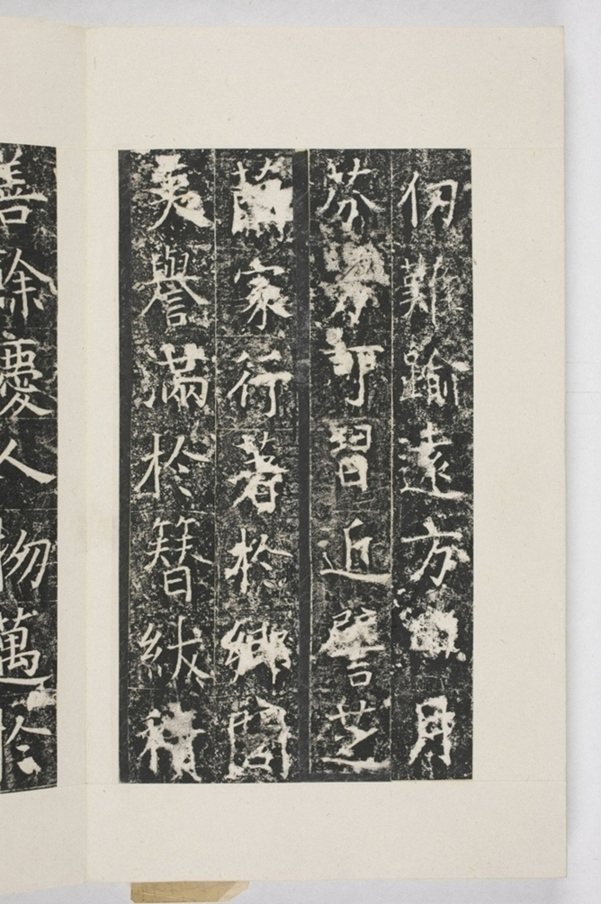 仞難踰遠方月
芬芳可習近譬芝
蘭家行著於鄉閭
美譽滿於簪紱積
善餘慶人物邁於